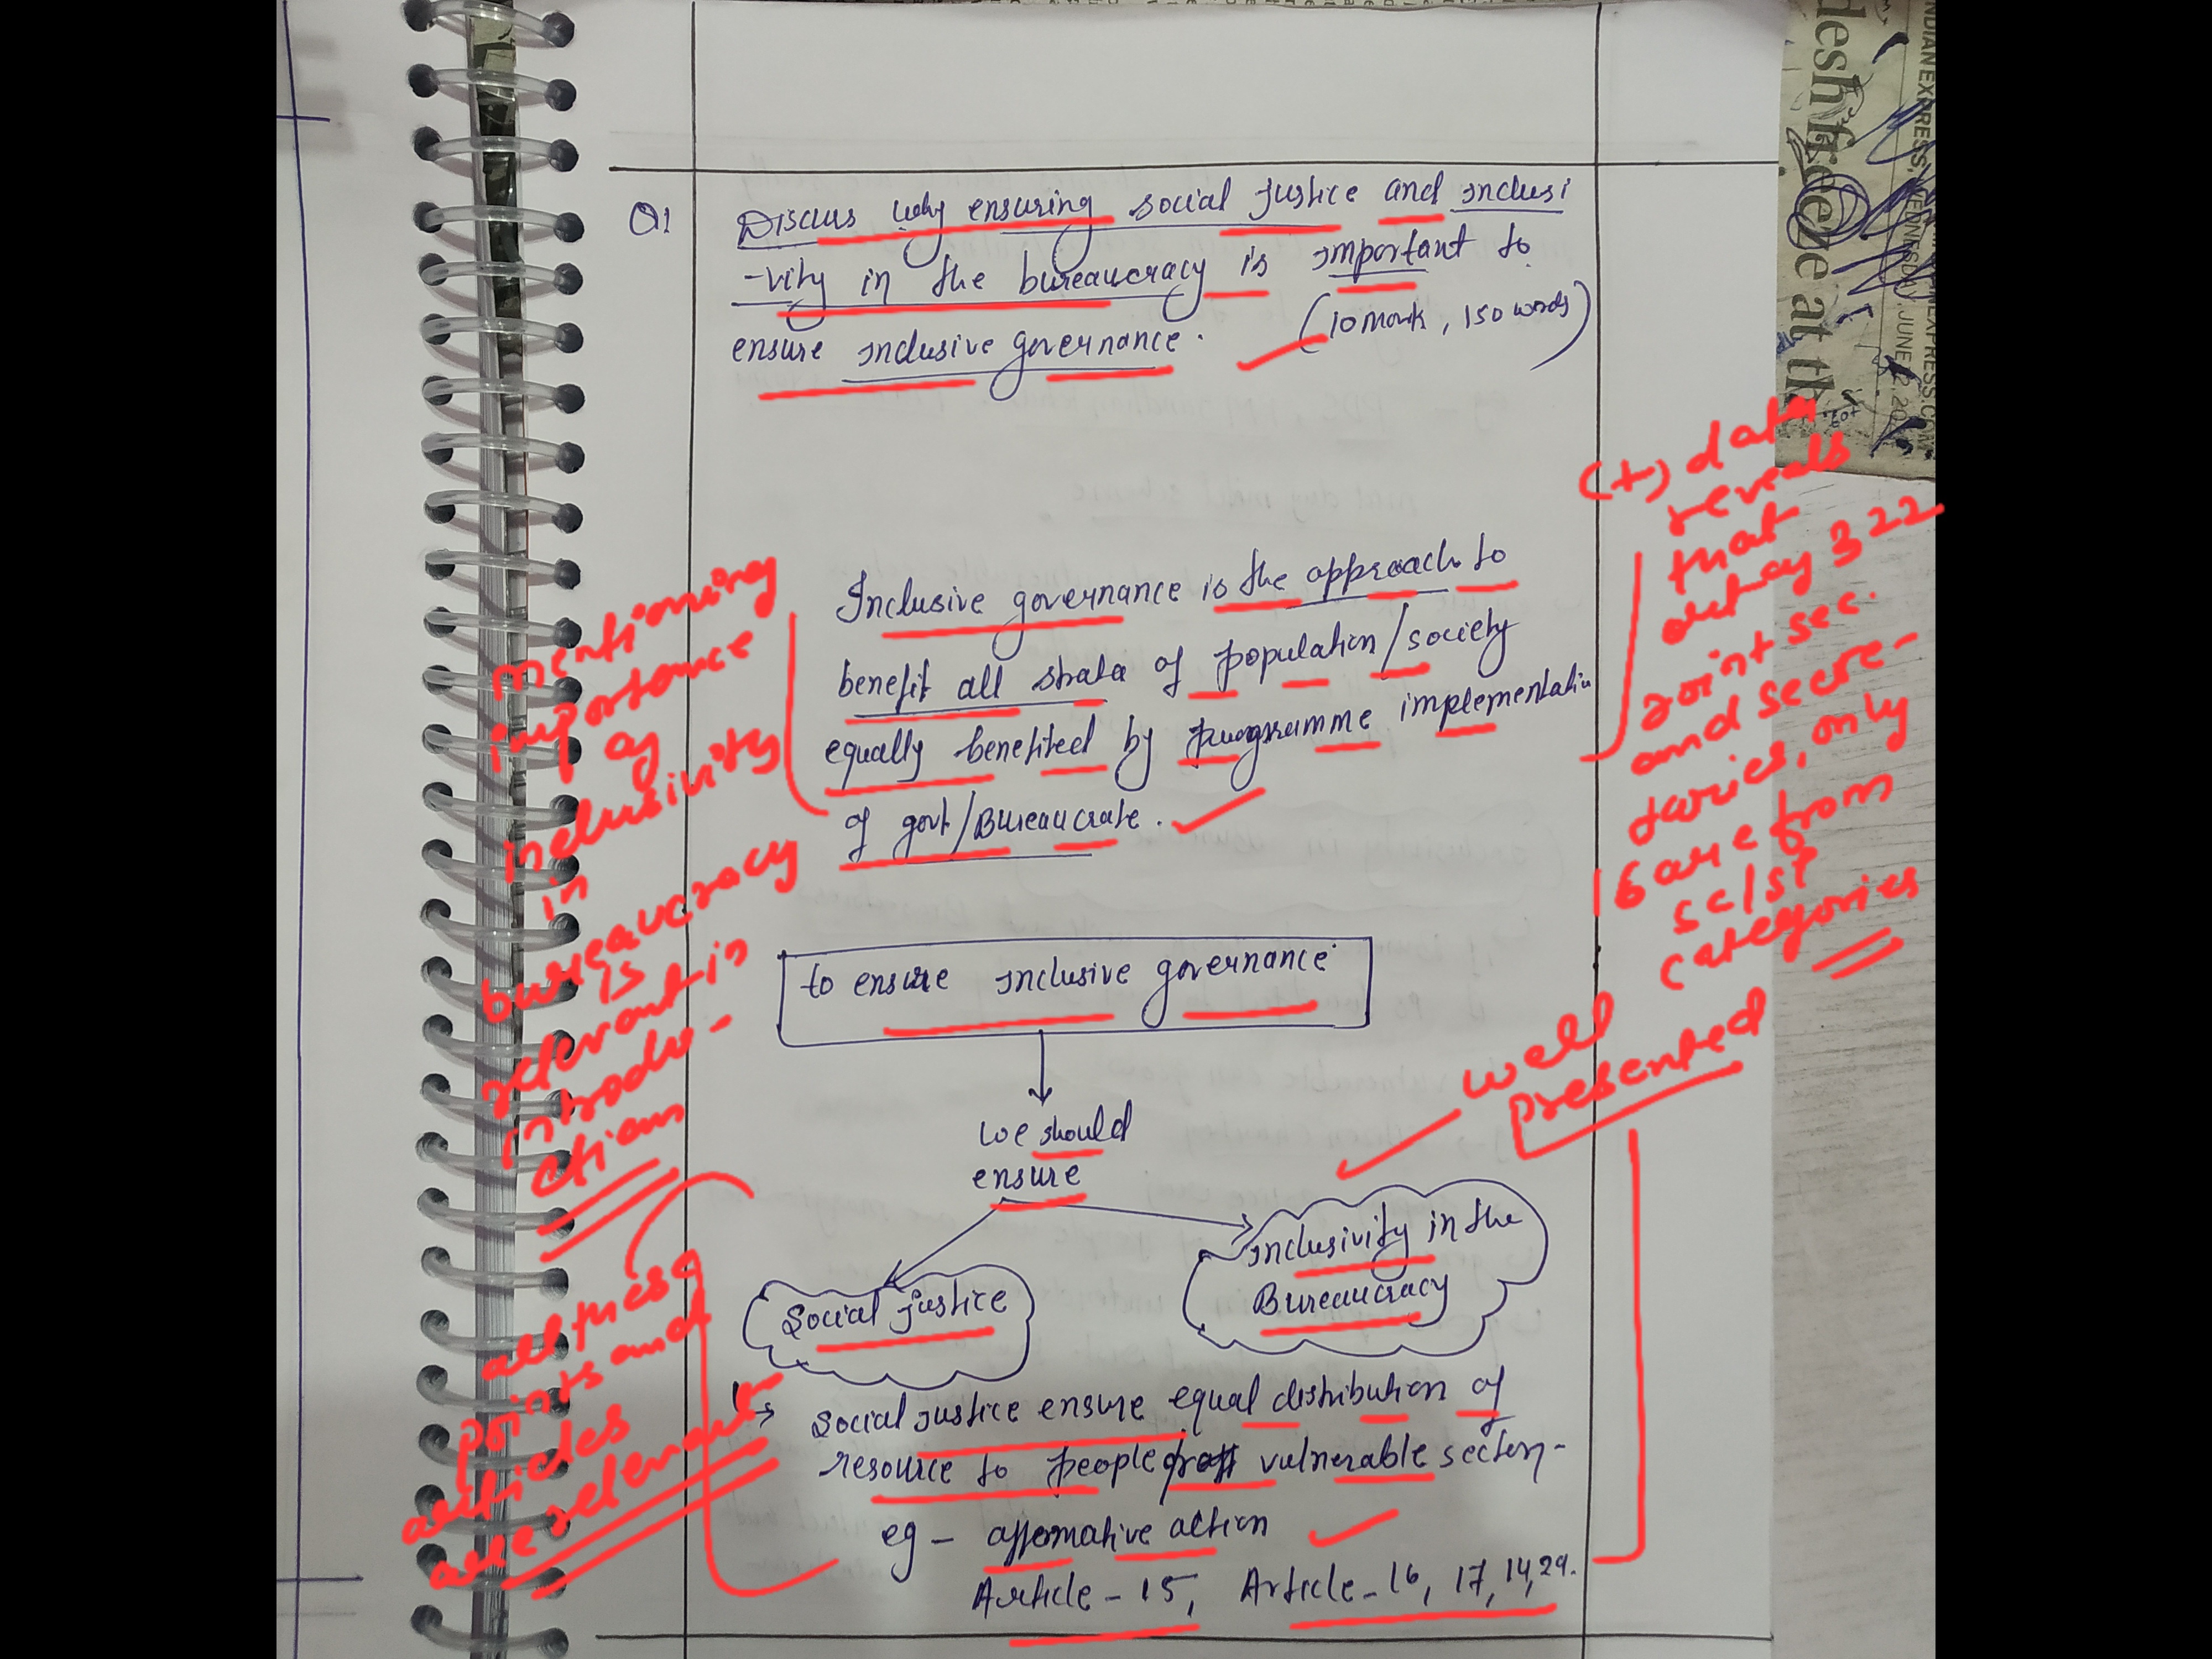 Q1 Discuss why ensuring social justice and inclusi
-vity in the bureaucracy is important to
ensure inclusive governance. (10 mark, 150 words)
Inclusive governance is the approach to
benefit all strata of population/society
equally benefited by programme implementation
of govt/Bureaucrate.
to ensure inclusive governance
we should
ensure
Social justice
Inclusivity in the
Bureaucracy
Social justice ensure equal distribution of
resource to people vulnerable section-
eg - affirmative action
Article - 15, Article - 16, 17, 14, 29.
mentioning
importance
of
inclusivity
in
bureaucracy
is
relevant in
introdu-
ctions
all these
points and
articles
are relevant
(+) data
reveals
that
out of 322
joint sec.
and secre-
taries, only
16 are from
SC/ST
categories
well
presented
desh freeze at th
INDIAN EXPRESS, WEDNESDAY, JUNE